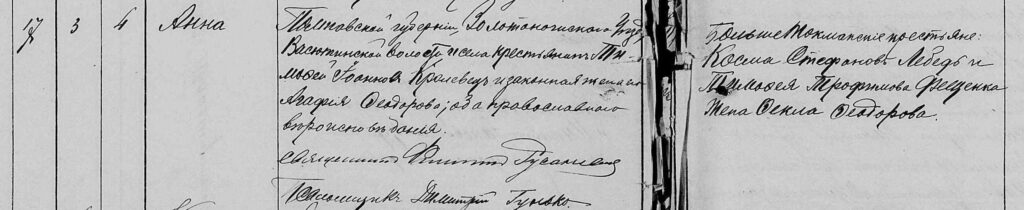 17 3 4 Анна
Полтавской губернии, Золотоношского Уезда,
Васютинской волости и села крестьянин Ти-
мофей Іоаннов Кролевец и законная жена его
Агафия Феодорова; оба православного
вероисповедания.
Священник Филипп
Псаломщик Димитрий Гунько
Больше Токмакские крестьяне:
Косма Стефанов Лебедь и
Тимофея Трофимова Фещенка
жена Фекла Феодорова.